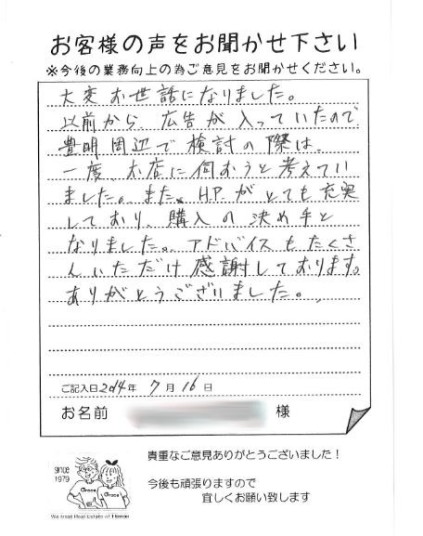 お客様の声をお聞かせ下さい
※今後の業務向上の為ご意見をお聞かせください。
大変お世話になりました。
以前から広告が入っていたので
豊明周辺で検討の際は、
一度、お店に伺おうと考えてい
ました。また、H.Pがとても充実
しており、購入の決め手と
なりました。アドバイスもたくさ
んいただけ感謝しております。
ありがとうございました。
ご記入日2014年 7月 16日
お名前 様
貴重なご意見ありがとうございました！
今後も頑張りますので
宜しくお願い致します
since
1979